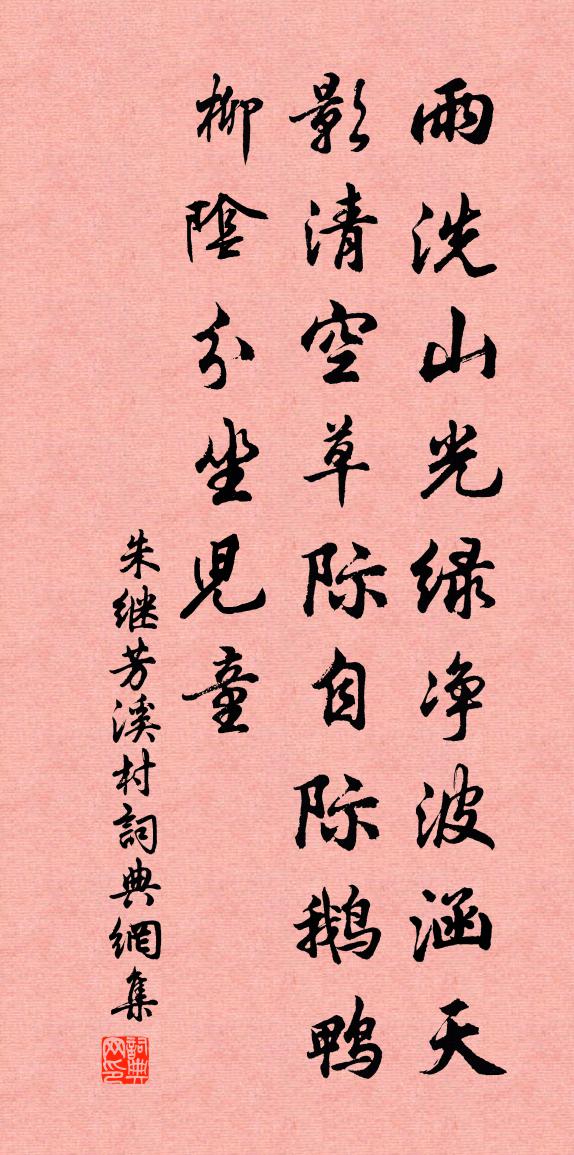 雨洗山光绿净波涵天
影清空草际自际鹅鸭
柳陰分坐児童
朱继芳溪村詞典網集
詞典网印